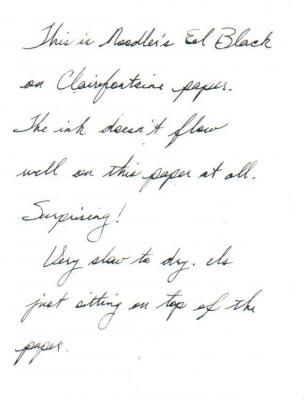 This is Noodler's Eel Black
on Clairefontaine paper.
The ink doesn't flow
well on this paper at all.
Surprising!
Very slow to dry. Is
just sitting on top of the
paper.